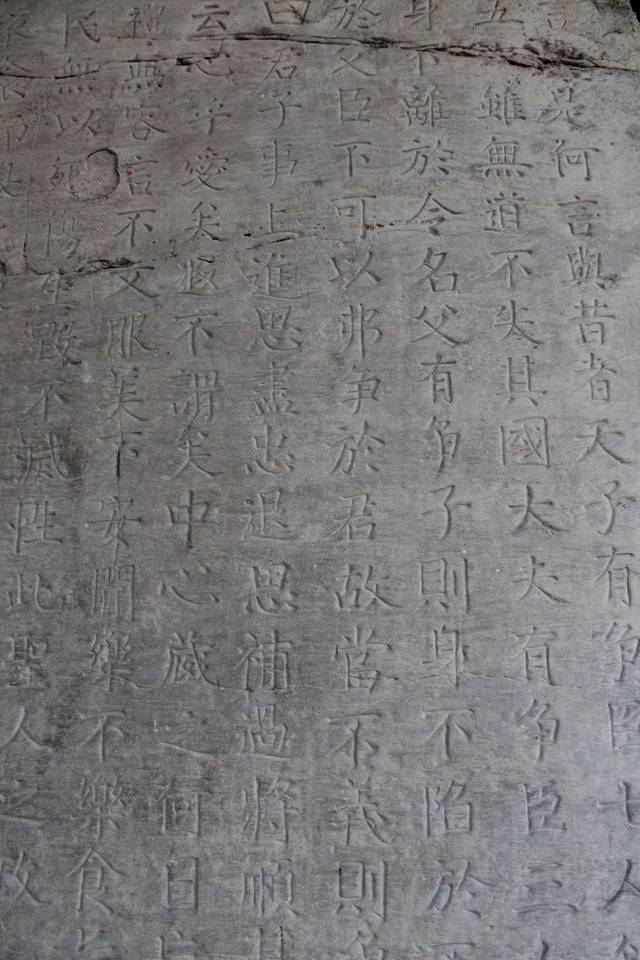 言是何言與昔者天子有争臣七人
五雖無道不失其國大夫有争臣三人
身不離於令名父有争子則身不陷於不
於父臣不可以弗争於君故當不義則争
曰君子事上進思盡忠退思補過將順其
云心乎愛矣遐不謂矣中心藏之何日忘
禮無容言不文服美不安聞樂不樂食旨
民無以死傷生毀不滅性此聖人之政